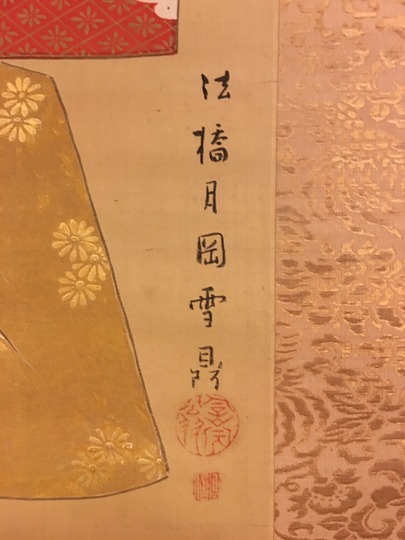 法橋月岡雪鼎